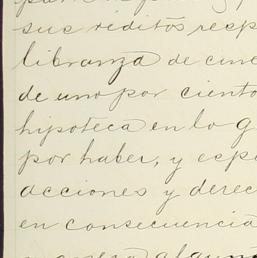 sus reditos resp
libranza de cinc
de uno por ciento
hipoteca en lo g
por haber, y espe
acciones y derec
en consecuencia